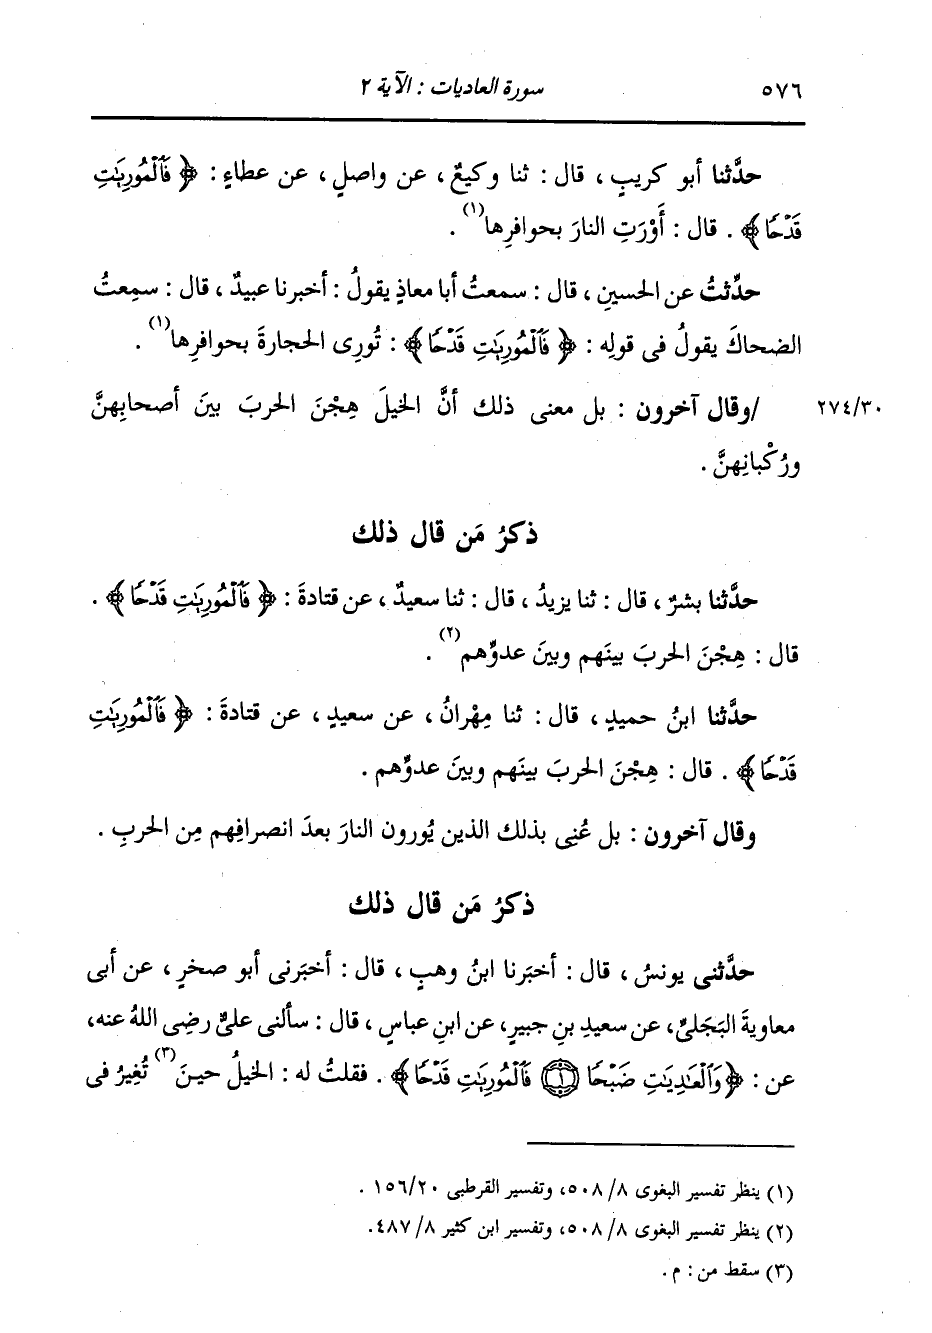 ٥٧٦ سورة العاديات : الآية ٢
حدَّثنا أبو كريبٍ ، قال : ثنا وكيعٌ ، عن واصلٍ ، عن عطاءٍ : ﴿ فَٱلْمُورِيَٰتِ
قَدْحًا ﴾ . قال : أَوْرَتِ النارَ بحوافرِها(١) .
حدِّثتُ عن الحسينِ ، قال : سمعتُ أبا معاذٍ يقولُ : أخبرنا عبيدٌ ، قال : سمِعتُ
الضحاكَ يقولُ فى قولِه : ﴿ فَٱلْمُورِيَٰتِ قَدْحًا ﴾ : تُورِى الحجارةَ بحوافرِها(١) .
٢٧٤/٣٠ /وقال آخرون : بل معنى ذلك أنَّ الخيلَ هِجْنَ الحربَ بينَ أصحابِهنَّ
ورُكْبانِهنَّ .
ذكرُ مَن قال ذلك
حدَّثنا بشرٌ ، قال : ثنا يزيدُ ، قال : ثنا سعيدٌ ، عن قتادةَ : ﴿ فَٱلْمُورِيَٰتِ قَدْحًا ﴾ .
قال : هِجْنَ الحربَ بينَهم وبينَ عدوِّهم(٢) .
حدَّثنا ابنُ حميدٍ ، قال : ثنا مِهْرانُ ، عن سعيدٍ ، عن قتادةَ : ﴿ فَٱلْمُورِيَٰتِ
قَدْحًا ﴾ . قال : هِجْنَ الحربَ بينَهم وبينَ عدوِّهم .
وقال آخرون : بل عُنِى بذلك الذين يُورون النارَ بعدَ انصرافِهم مِن الحربِ .
ذكرُ مَن قال ذلك
حدَّثنى يونسُ ، قال : أخبَرنا ابنُ وهبٍ ، قال : أخبَرنى أبو صخرٍ ، عن أبى
معاويةَ البَجَلىِّ، عن سعيدِ بنِ جبيرٍ، عن ابنِ عباسٍ ، قال : سألنى علىٌّ رضِى اللهُ عنه،
عن : ﴿ وَٱلْعَٰدِيَٰتِ ضَبْحًا ١ فَٱلْمُورِيَٰتِ قَدْحًا ﴾ . فقلتُ له : الخيلُ حينَ(٣) تُغِيرُ فى
(١) ينظر تفسير البغوى ٨/ ٥٠٨، وتفسير القرطبى ١٥٦/٢٠ .
(٢) ينظر تفسير البغوى ٨/ ٥٠٨، وتفسير ابن كثير ٨/ ٤٨٧.
(٣) سقط من : م .